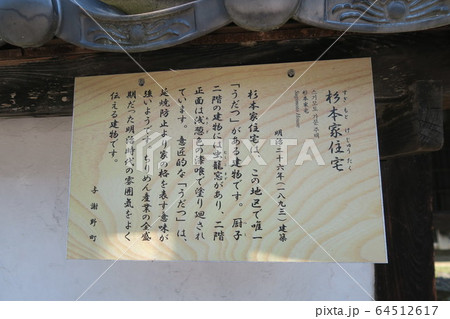 すぎ もと け じゅうたく
杉本家住宅
明治二十六年(一八九三)建築
杉本家住宅は、この地区で唯一
「うだつ」がある建物です。厨子
二階の建物には虫籠窓があり、二階
正面は浅葱色の漆喰で塗り廻され
ています。意匠的な「うだつ」は、
延焼防止より家の格を表す意味が
強いようで、ちりめん産業の全盛
期だった明治時代の雰囲気をよく
伝える建物です。
与謝野町
pixta.jp - 64512617